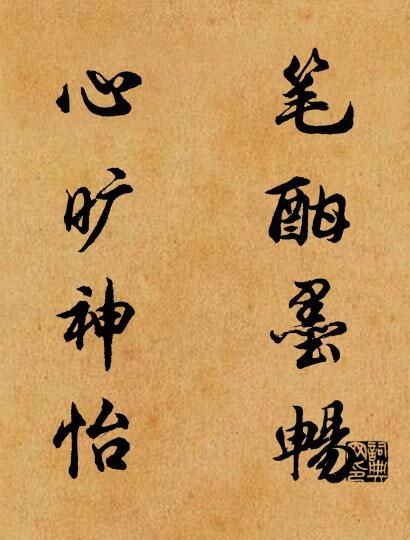 笔酣墨暢
心旷神怡